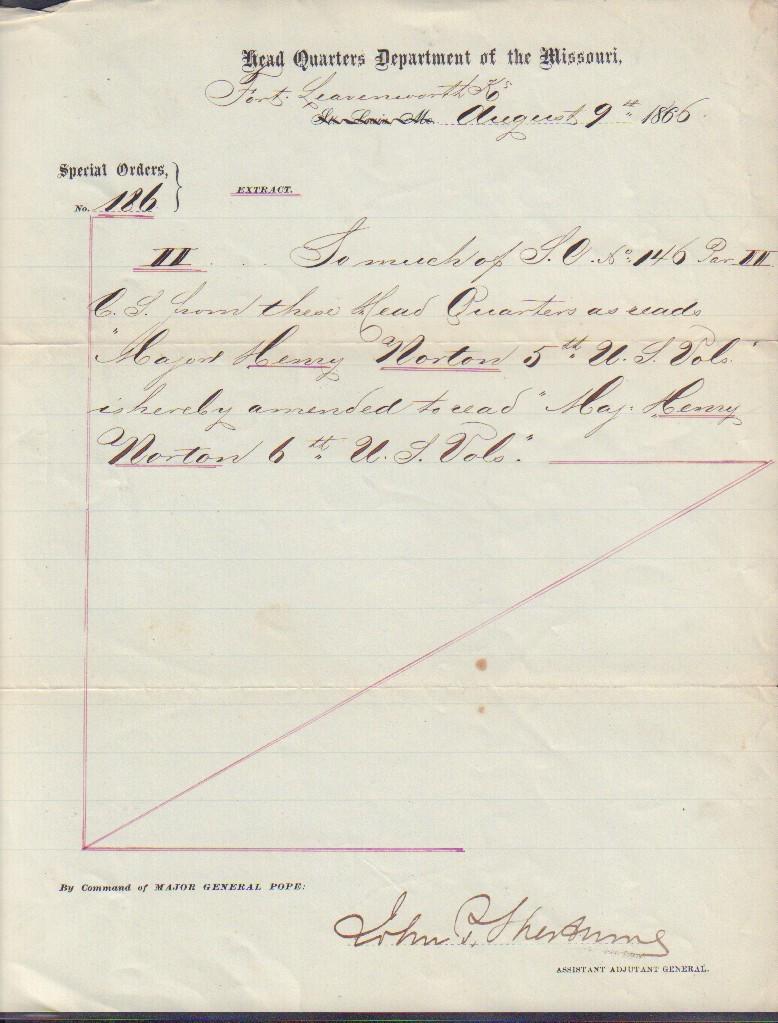 Head Quarters Department of the Missouri,
Fort Leavenworth Ks
St. Louis Mo. August 9th 1866.
Special Orders,
No. 186
EXTRACT.
II . . . So much of S.O. No. 146 Par II
C.S. from these Head Quarters as reads
"Major Henry Norton 5th U.S. Vols."
is hereby amended to read "Maj: Henry
Norton 6th U.S. Vols."
By Command of MAJOR GENERAL POPE:
John P. Sherburne
ASSISTANT ADJUTANT GENERAL.